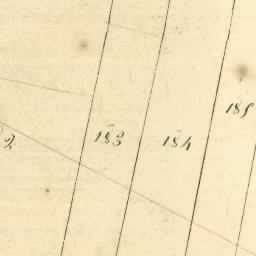 185
183
184
2